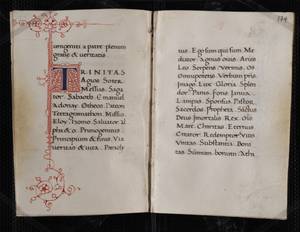 umgeniti a patre plenum
gratie & veritatis
TRINITAS
Agios Sotter
Messias. Sag
tor. Sabaoth Emanuel
Adonay. Otheos. Paton
Tetragramathon. Missio
Eloy. Homo. Saluator. al
pha & o. Primogenitus.
Principium & finis. Via
ueritas & uita. Parocli
174
tus. Ego sum qui sum. Me
diator. Agnus ouis. Aries
Leo Serpens. Vermis. Os
Omnipotens. Verbum pris
Imago. Lux Gloria. Splen
dor. Panis Fons Ianua.
Lampas. Sponsus. Pastor.
Sacerdos. Propheta. Sanctus
Deus Imortalis Rex. Os
Mare. Charitas Eternus
Creator. Redemptor. Vita
Vnitas. Substantia. Boni
tas Sumum bonum. Atha